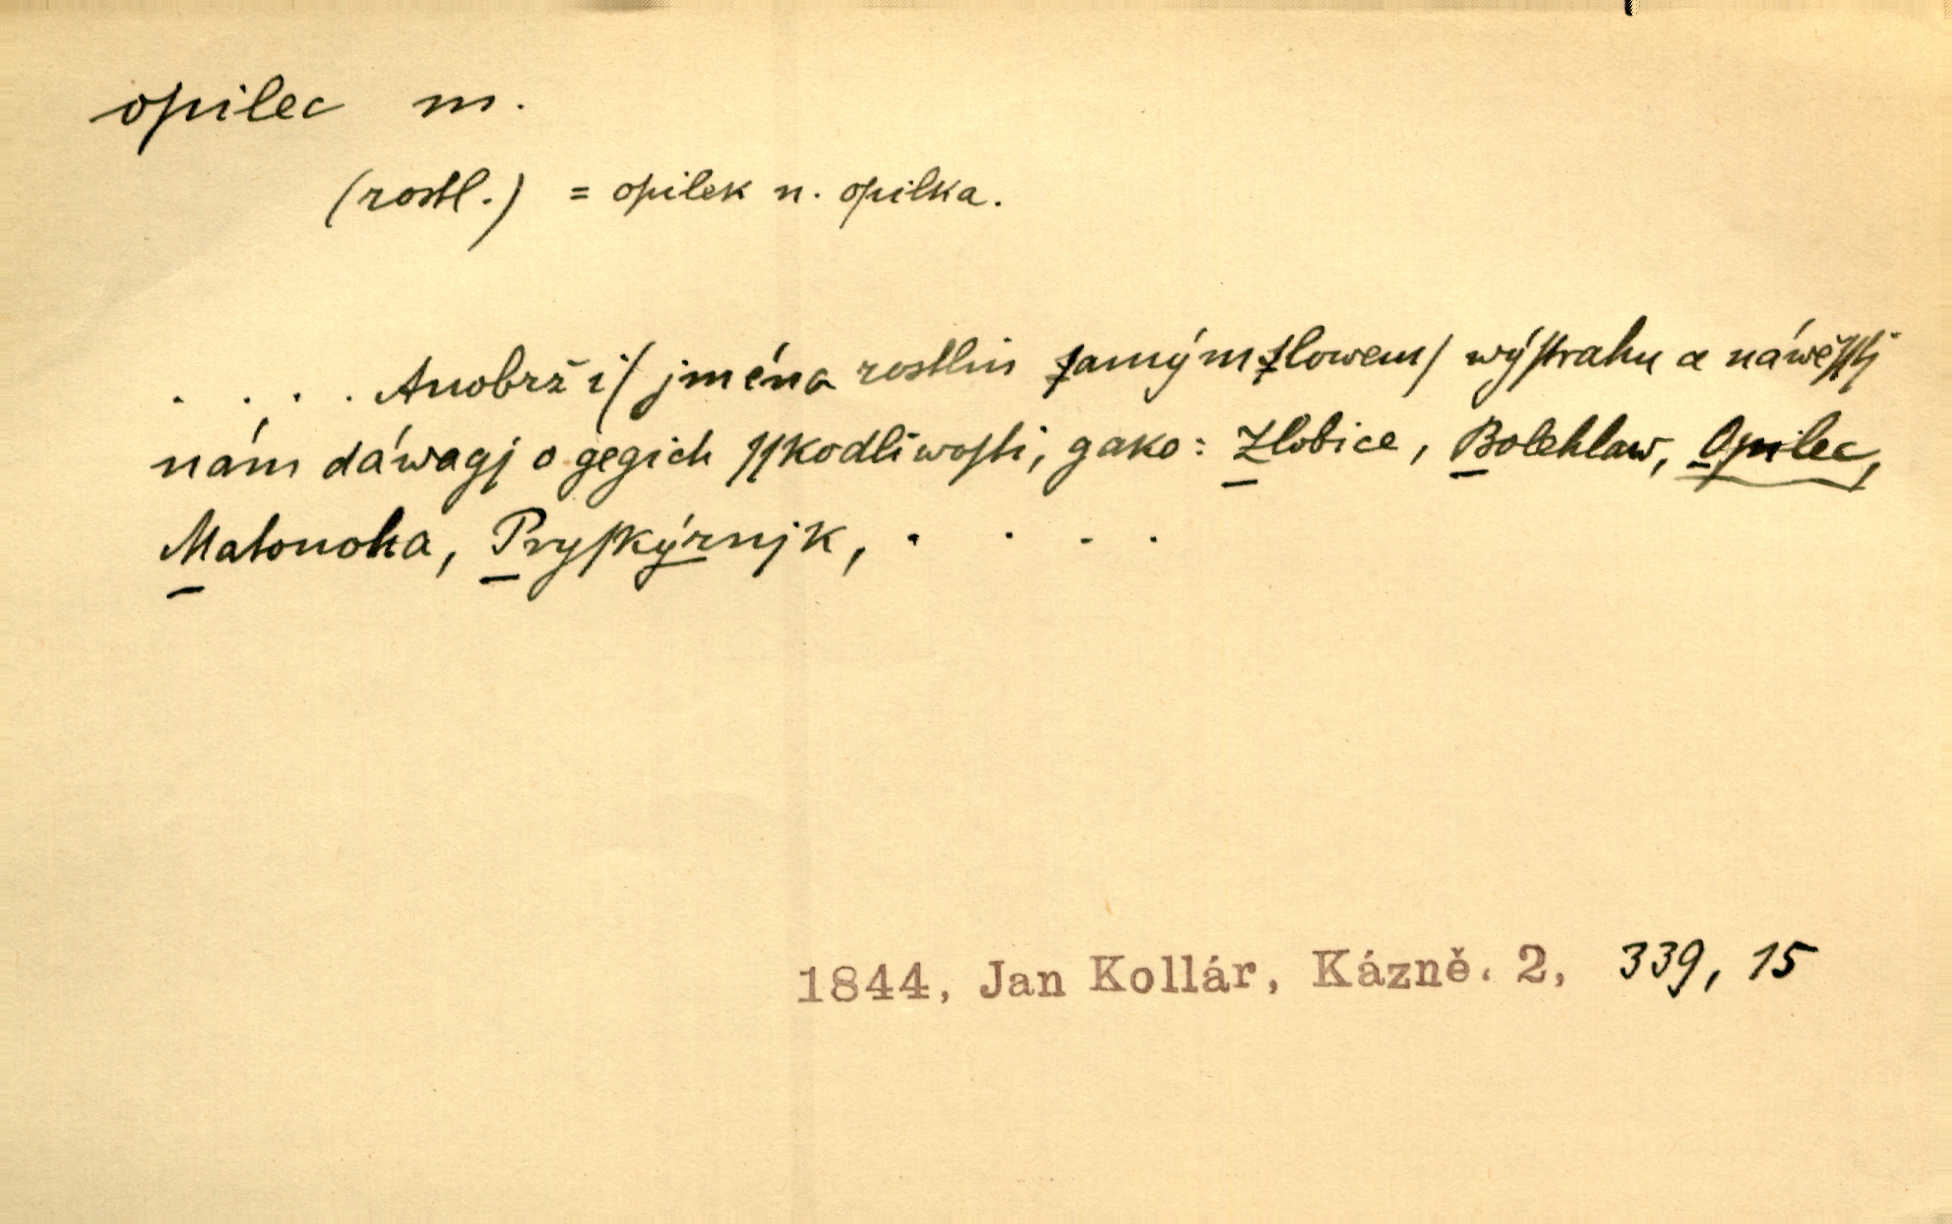 opilec m.
(rostl.) = opilek n. opilka.
. . . . Anobrž i/ jména rostlin ſamým ſlowem/ wýſtrahu a náwěſſtj
nám dáwagj o gegich ſſkodliwoſti, gako: Zlobice, Bolehlaw, Opilec,
Matonoha, Pryſkýrnjk, . . . .
1844, Jan Kollár, Kázně. 2, 339, 15